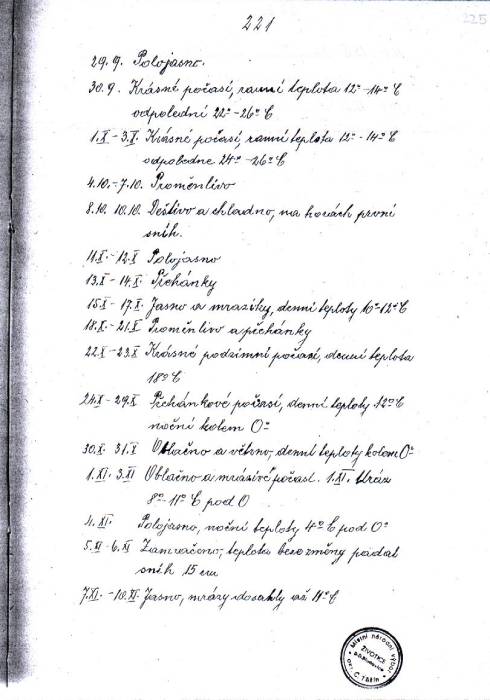 221
225
29.9. Polojasno.
30.9. Krásné počasí, ranní teplota 12°-14°C
odpolední 22°-26°C
1.X - 3.X. Krásné počasí, ranní teplota 12°-14°C
odpoledne 24°-26°C
4.10.-7.10. Proměnlivo
8.10. 10.10. Deštivo a chladno, na horách první
sníh.
11.X.-12.X Polojasno
13.X - 14.X. Přehánky
15.X - 17.X. Jasno a mrazíky, denní teploty 10°-12°C
18.X.-21.X Proměnlivo a přehánky
22.X - 23.X Krásné podzimní počasí, denní teplota
18°C
24.X - 29.X Přehánkové počasí, denní teploty 12°C
noční kolem 0°
30.X. 31.X Oblačno a větrno, denní teploty kolem 0°
1.XI. 3.XI Oblačno a mrazivé počasí. 1.XI. Mráz
8°-11°C pod 0
4.XI. Polojasno, noční teploty 4°C pod 0°
5.XI-6.XI Zamračeno, teplota beze změny padal
sníh 15 cm
7.XI.-10.XI. Jasno, mrázy dosáhly až 11°C
Místní národní výbor
ŽIVOTICE
okr. Č. Těšín